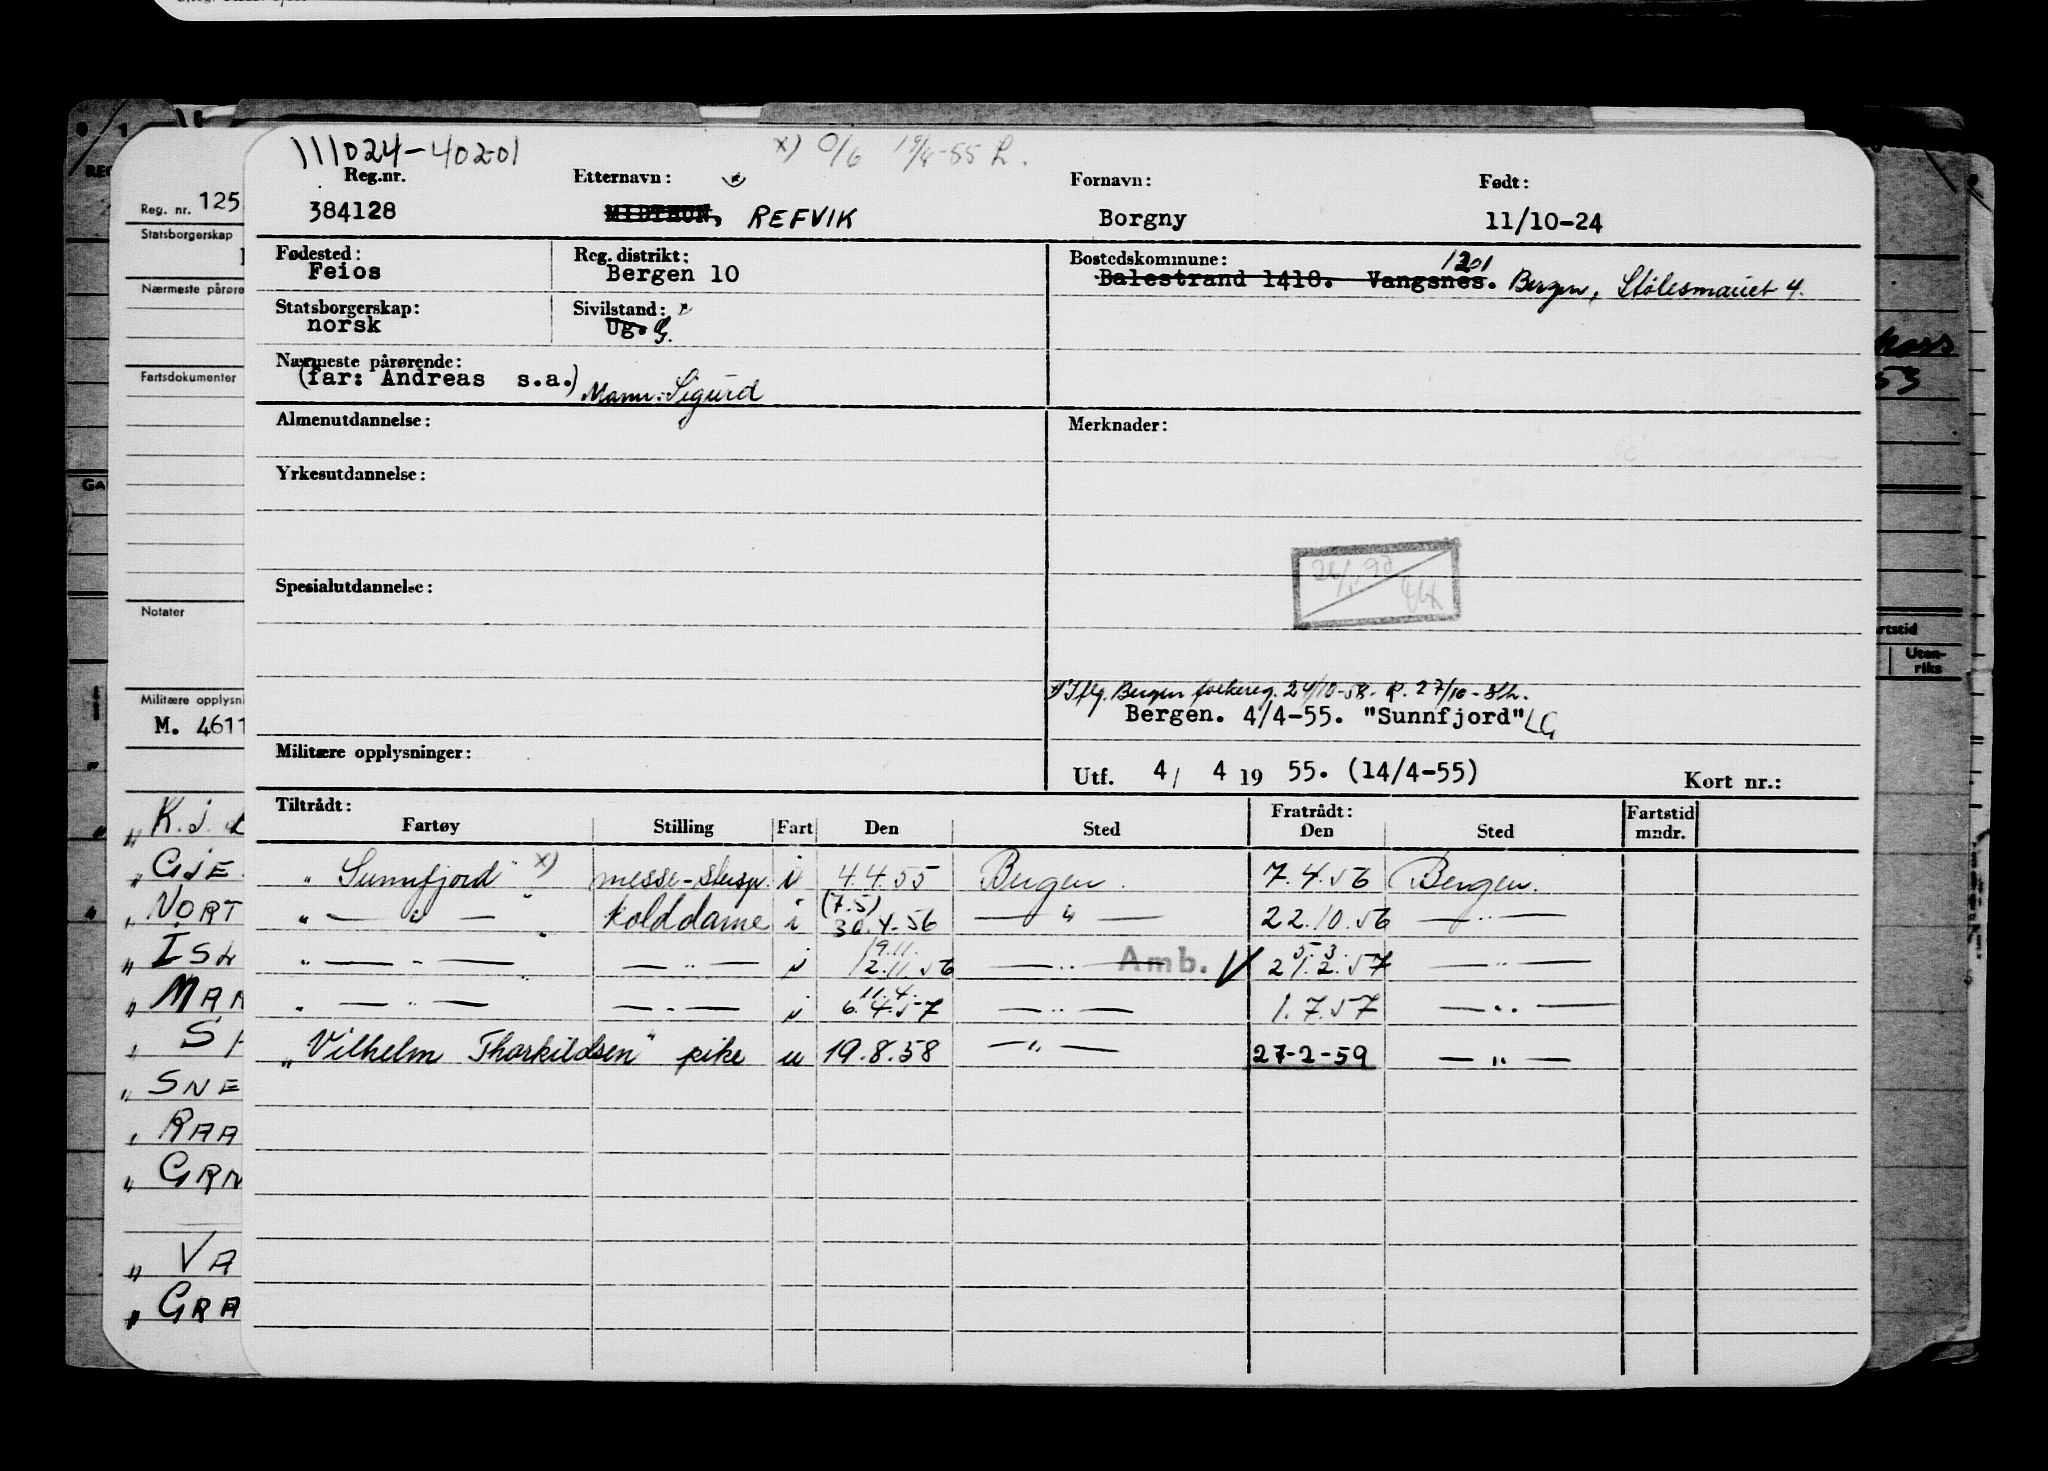 111024-40201
x) 0/6 19/4-55 L.
Reg.nr. Etternavn: Fornavn: Født:
384128 MIDTHUN, REFVIK Borgny 11/10-24
Fødested: Reg. distrikt: Bostedskommune: 1201
Feios Bergen 10 Balestrand 1418. Vangsnes. Bergen, Stølesmauet 4.
Statsborgerskap: Sivilstand: x
norsk Ug. G.
Nærmeste pårørende:
(far: Andreas s.a.) Mann: Sigurd
Almenutdannelse: Merknader:
Yrkesutdannelse:
Spesialutdannelse:
x) Iflg. Bergen folkereg. 24/10-58. R. 27/10-
Bergen. 4/4-55. "Sunnfjord" LG
Militære opplysninger:
Utf. 4/ 4 19 55. (14/4-55) Kort nr.:
Tiltrådt: Fratrådt: Fartstid
Fartøy Stilling Fart Den Sted Den Sted mndr.
"Sunnfjord" x) messe-stersp. i 4.4.55 Bergen. 7.4.56 Bergen.
(7.5)
" — " — " kolddame i 30.4-56 — " — 22.10.56 — " —
19.11. 5.3.
" — " — — " — i 12.11.56 — " — Amb. V 21.2.57 — " —
11.4.
" — " — " — " — i 6.4.57 — " — 1.7.57 — " —
"Vilhelm Thorkildsen" pike u 19.8.58 — " — 27-2-59 — " —
Reg. nr. 125
Statsborgerskap
Nærmeste pårøre
Fartsdokumenter
Notater
Militære opplysni
M. 4611
" K.J.
" GJE
" NORT
" ISL
" MAR
" S
" SNE
" RAA
" GRN
" VA
" GRA
REG
GA
53
rtstid
Uten-
riks